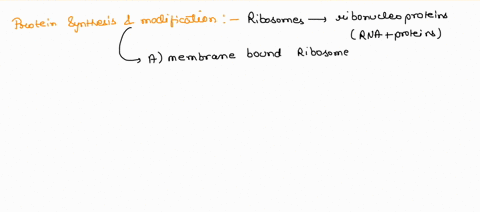 Protein Synthesis & modification :- Ribosomes → ribonucleoproteins
(RNA + proteins)
A) membrane bound Ribosome